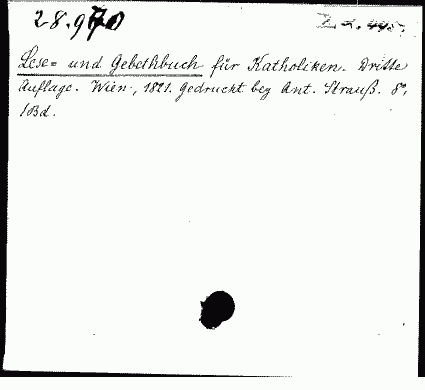 28.970
Lese- und Gebethbuch für Katholiken. Dritte
Auflage. Wien, 1821. Gedruckt bey Ant. Strauß. 8°,
1Bd.